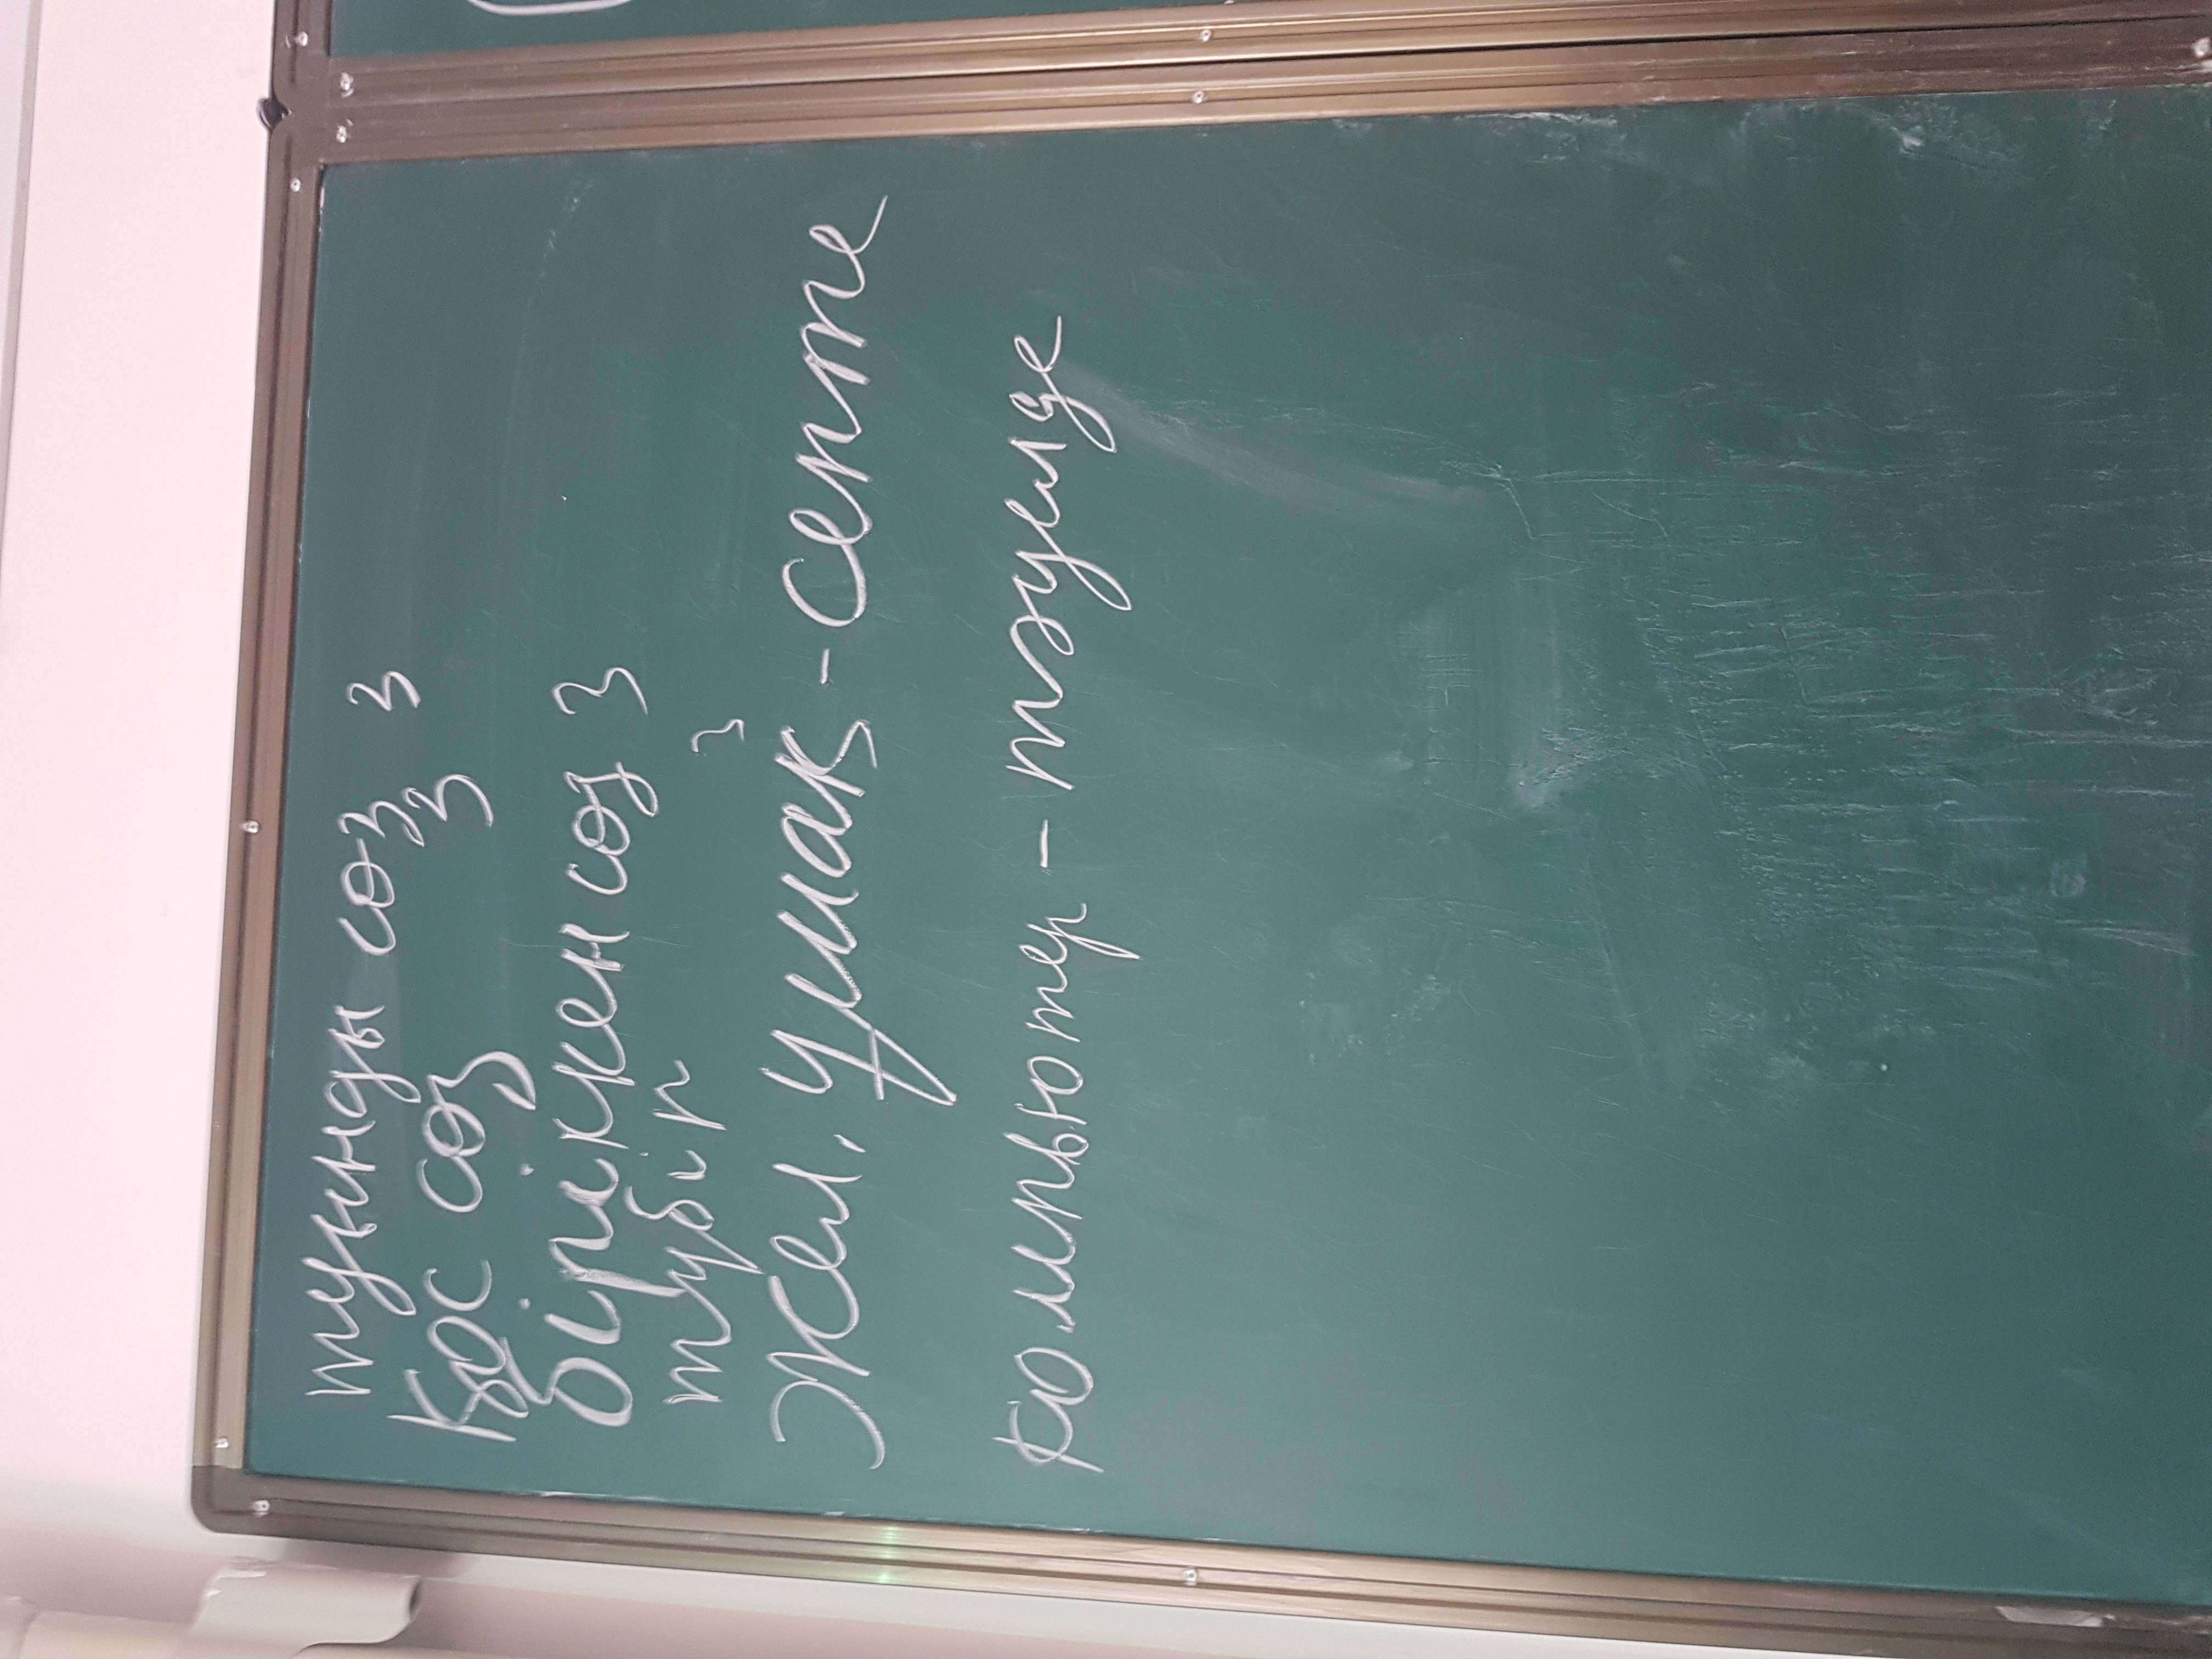 туынды сөз 3
Қос сөз 3
біріккен сөз 3
түбір 3
Жел, ұшақ - септе
компьютер - тәуелде